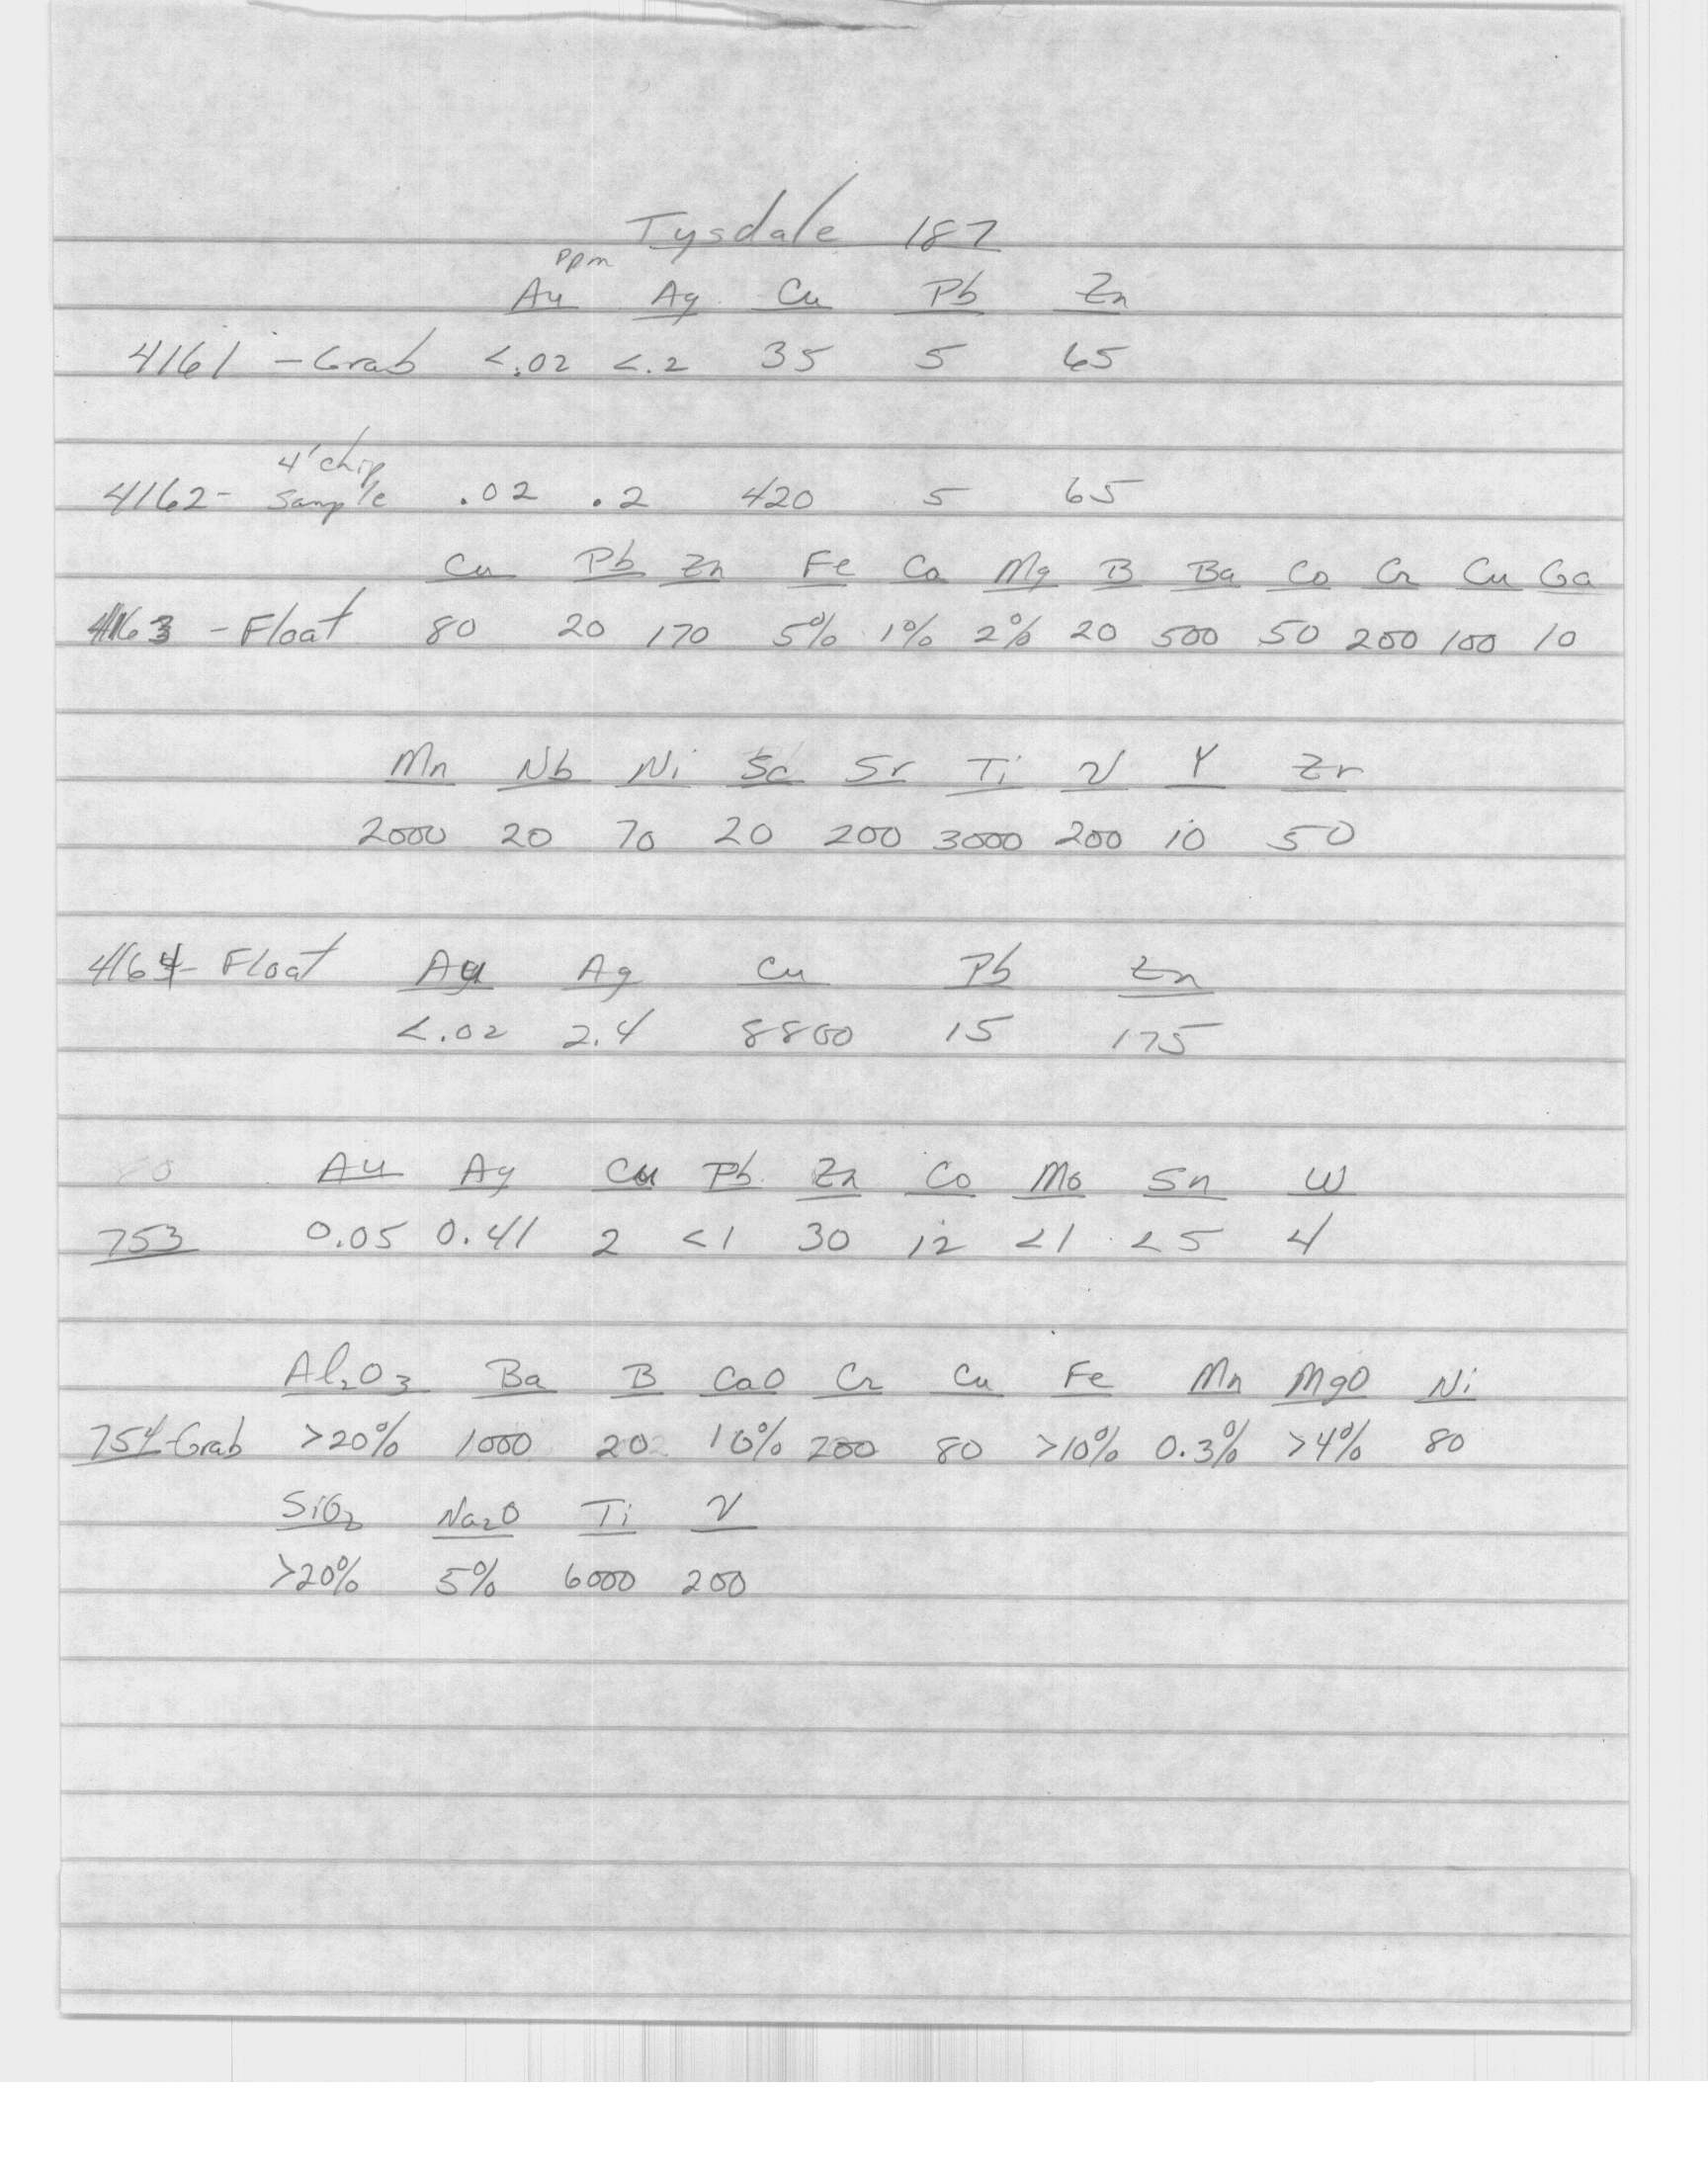 Tysdale 187
ppm
Au Ag Cu Pb Zn
4161 - Grab <.02 <.2 35 5 65
4' chip
4162- Sample .02 .2 420 5 65
Cu Pb Zn Fe Ca Mg B Ba Co Cr Cu Ga
4163 - Float 80 20 170 5% 1% 2% 20 500 50 200 100 10
Mn Nb Ni Sc Sr Ti V Y Zr
2000 20 70 20 200 3000 200 10 50
4164- Float Au Ag Cu Pb Zn
<.02 2.4 8800 15 175
Au Ag Cu Pb Zn Co Mo Sn W
753 0.05 0.41 2 <1 30 12 <1 <5 4
Al2O3 Ba B CaO Cr Cu Fe Mn MgO Ni
754-Grab >20% 1000 20 10% 200 80 >10% 0.3% >4% 80
SiO2 Na2O Ti V
>20% 5% 6000 200